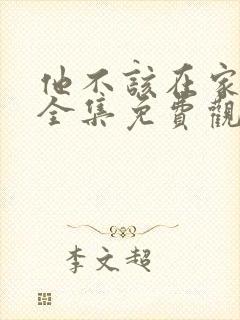 他不該在家
全集免費觀
李文超